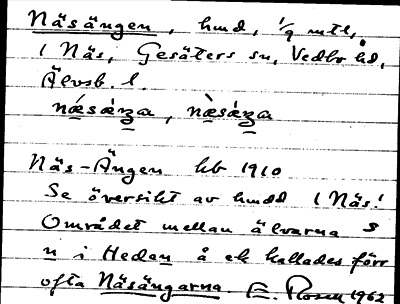 Näsängen, hmd, 1/9 mtl,
i Näs, Gesäters sn, Vedbo hd,
Älvsb. l.
næ̀sæŋa, næ̀sæŋa
Näs-Ängen hb 1910
Se översikt av hmdd i Näs!
Området mellan älvarna S
n i Heden å ek kallades förr
ofta Näsängarna. E. Rosell 1962